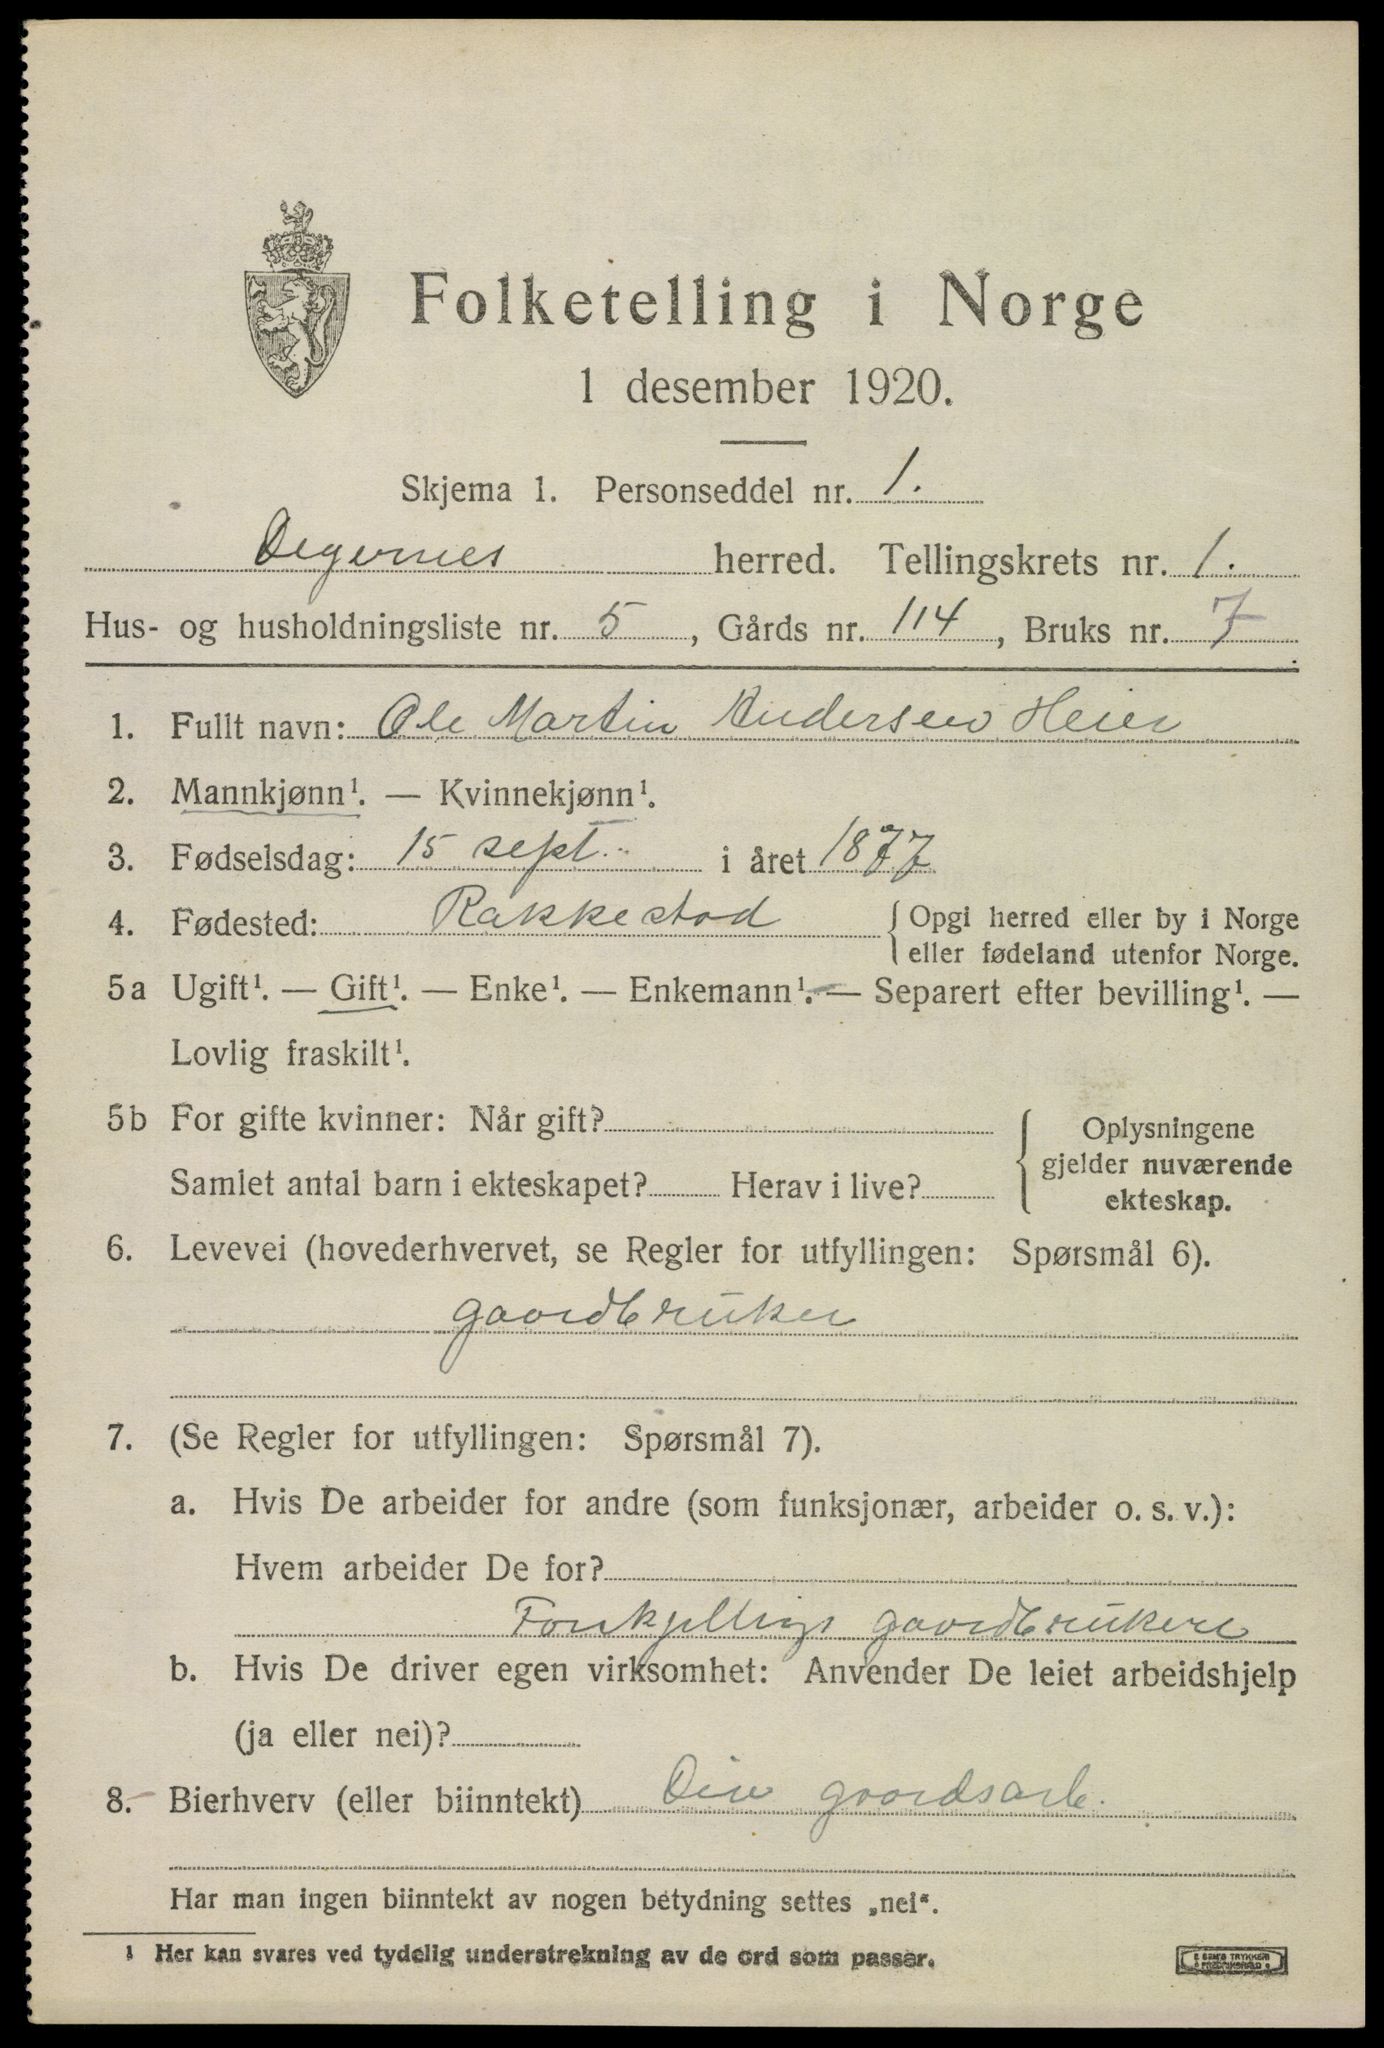 Folketelling i Norge
1 desember 1920.
Skjema 1. Personseddel nr. 1.
Degernes herred. Tellingskrets nr. 1.
Hus- og husholdningsliste nr. 5, Gårds nr. 114, Bruks nr. 7
1. Fullt navn: Ole Martin Andersen Heier
2. Mannkjønn¹. — Kvinnekjønn¹.
3. Fødselsdag: 15 sept. i året 1877
4. Fødested: Rakkestad { Opgi herred eller by i Norge
eller fødeland utenfor Norge.
5a Ugift¹. — Gift¹. — Enke¹. — Enkemann¹. — Separert efter bevilling¹. —
Lovlig fraskilt¹.
5b For gifte kvinner: Når gift?
Samlet antal barn i ekteskapet? Herav i live?
{ Oplysningene
gjelder nuværende
ekteskap.
6. Levevei (hovederhvervet, se Regler for utfyllingen: Spørsmål 6).
gaardbruker
7. (Se Regler for utfyllingen: Spørsmål 7).
a. Hvis De arbeider for andre (som funksjonær, arbeider o. s. v.):
Hvem arbeider De for?
Forskjellige gaardbrukere
b. Hvis De driver egen virksomhet: Anvender De leiet arbeidshjelp
(ja eller nei)?
8. Bierhverv (eller biinntekt) Div gaardsarb.
Har man ingen biinntekt av nogen betydning settes „nei“.
¹ Her kan svares ved tydelig understrekning av de ord som passer.